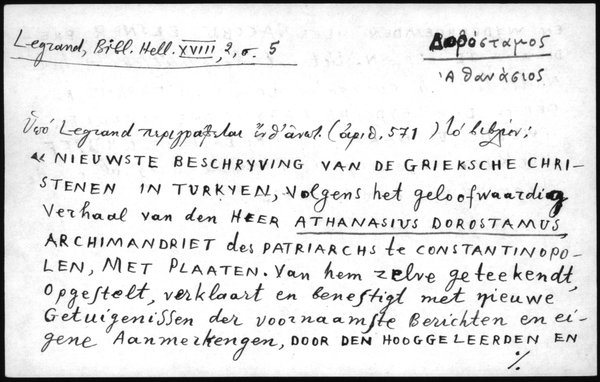 Legrand, Bibl. Hell. XVIII, 2, σ. 5
Δοροστάμος
Ἀθανάσιος
Ὑπό Legrand περιγράφεται ἔνθ' ἀνωτ. (ἀριθ. 571) τό βιβλίον:
« NIEUWSTE BESCHRYVING VAN DE GRIEKSCHE CHRI-
STENEN IN TURKYEN, volgens het geloofwaardig
verhaal van den HEER ATHANASIUS DOROSTAMUS
ARCHIMANDRIET des PATRIARCHS te CONSTANTINOPO-
LEN, MET PLAATEN. Van hem zelve geteekendt,
Opgestelt, verklaart en benestigt met nieuwe
Getuigenissen der voornaamste Berichten en ei-
gene Aanmerkengen, DOOR DEN HOOGGELEERDEN EN
./.